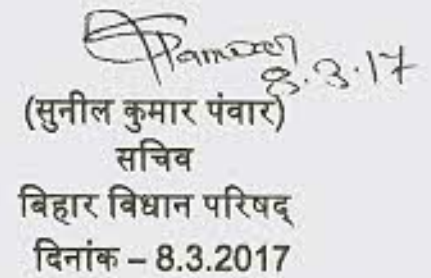 Panwar
8.3.17
(सुनील कुमार पंवार)
सचिव
बिहार विधान परिषद्
दिनांक – 8.3.2017